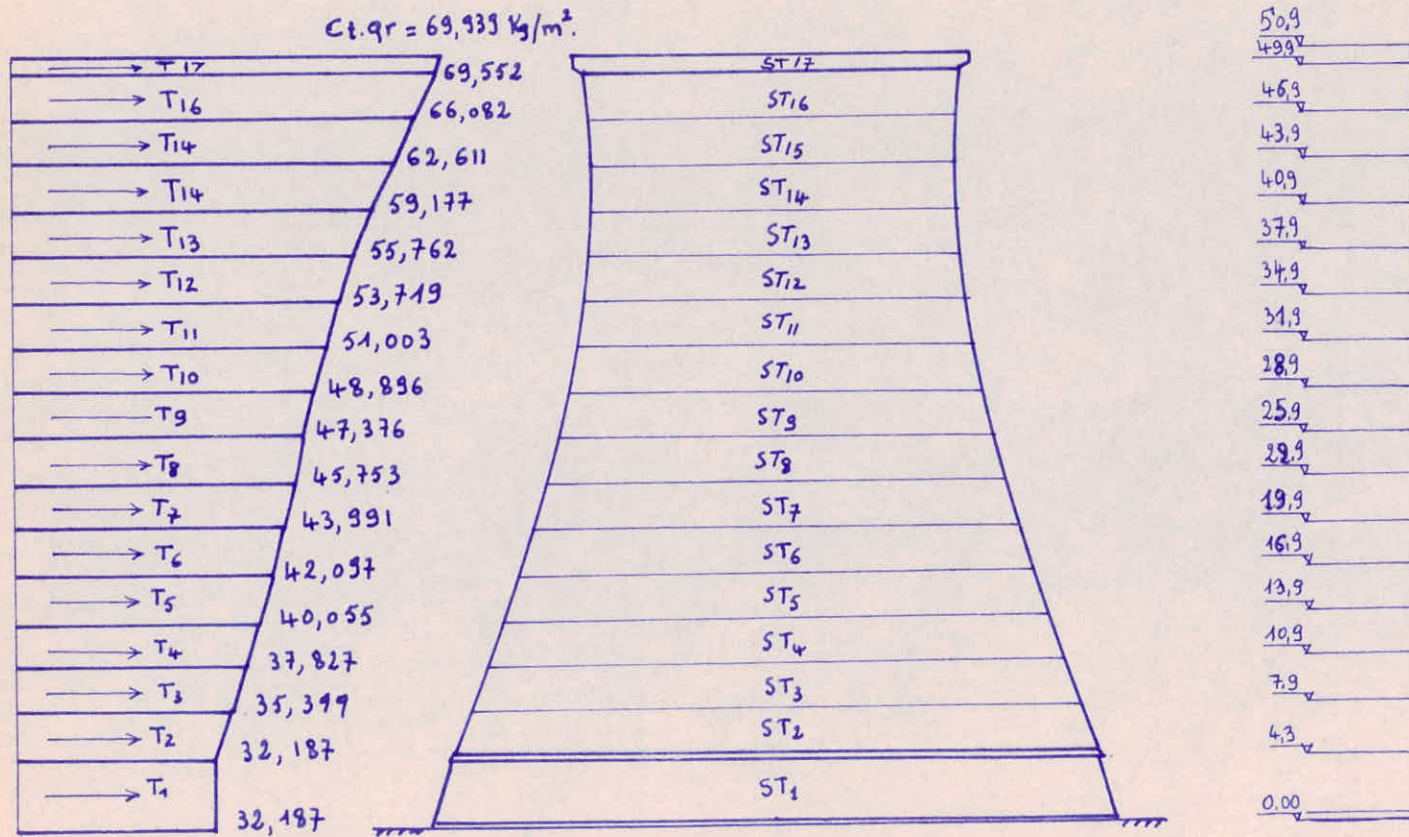 Ct.qr = 69,939 Kg/m².
T17
69,552
T16
66,082
T14
62,611
T14
59,177
T13
55,762
T12
53,719
T11
51,003
T10
48,896
T9
47,376
T8
45,753
T7
43,991
T6
42,097
T5
40,055
T4
37,827
T3
35,399
T2
32,187
T1
32,187
ST17
ST16
ST15
ST14
ST13
ST12
ST11
ST10
ST9
ST8
ST7
ST6
ST5
ST4
ST3
ST2
ST1
50,9
49,9
46,9
43,9
40,9
37,9
34,9
31,9
28,9
25,9
22,9
19,9
16,9
13,9
10,9
7,9
4,3
0,00